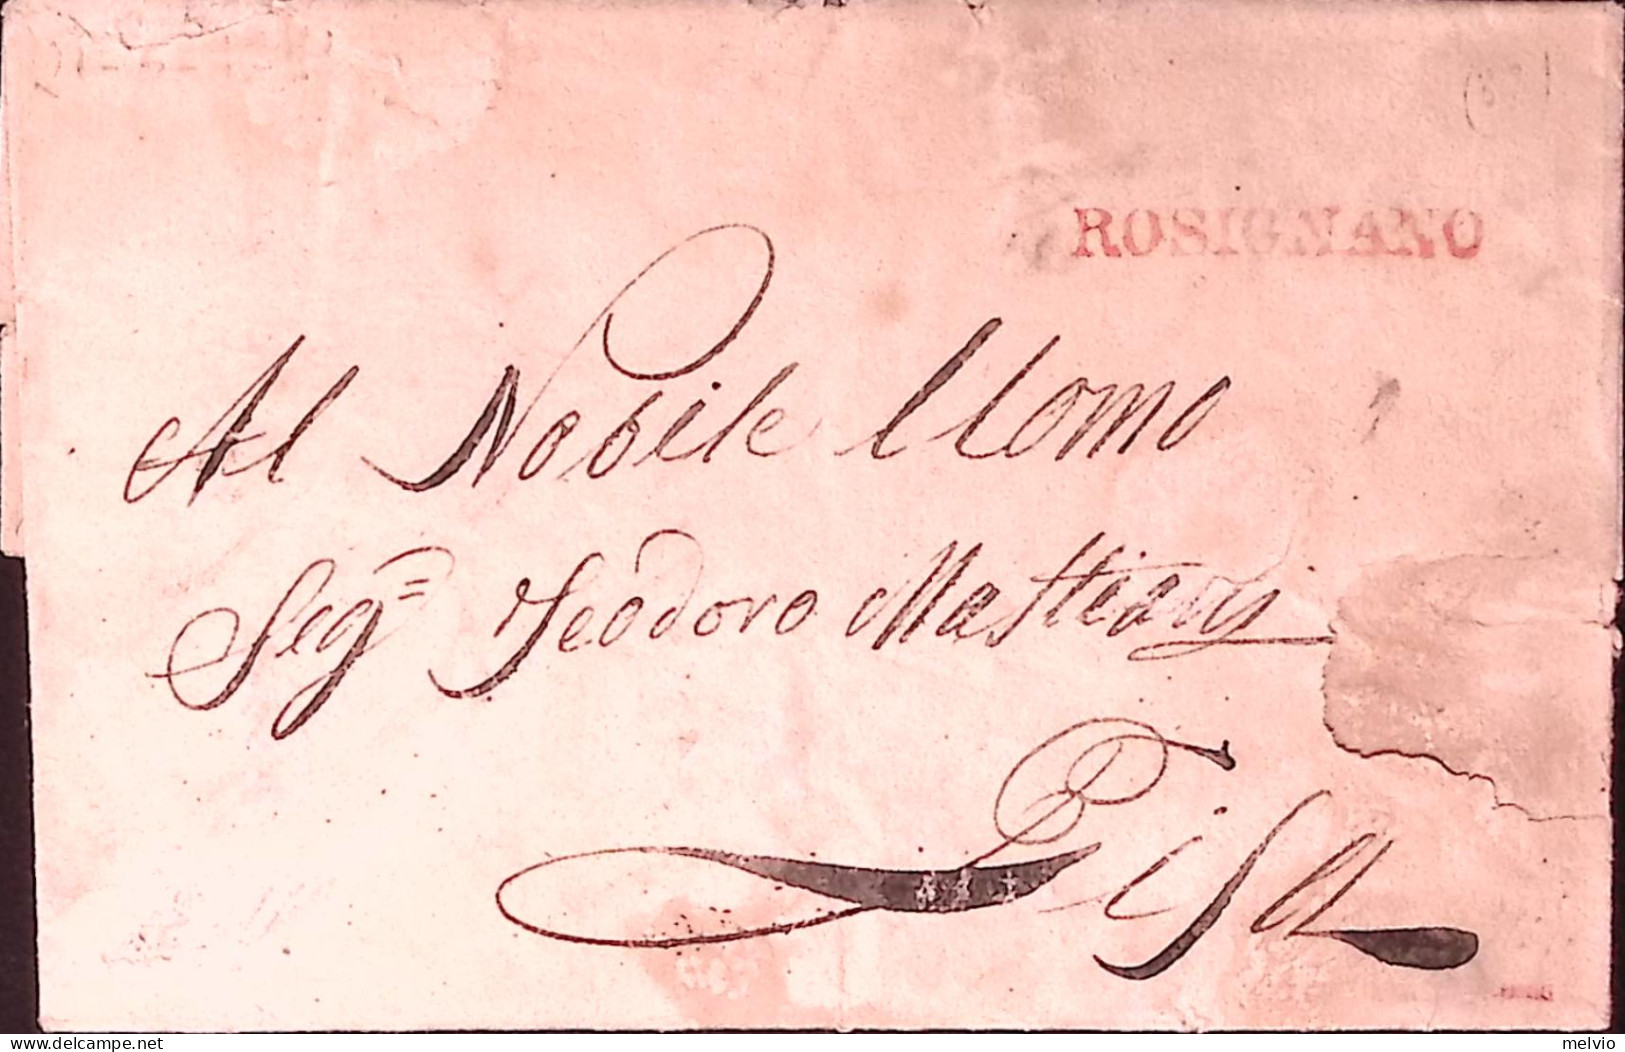 ROSIGNANO
Al Nobile Uomo
Sig.= Teodoro Mastiany
Pisa
delcampe.net
melvio